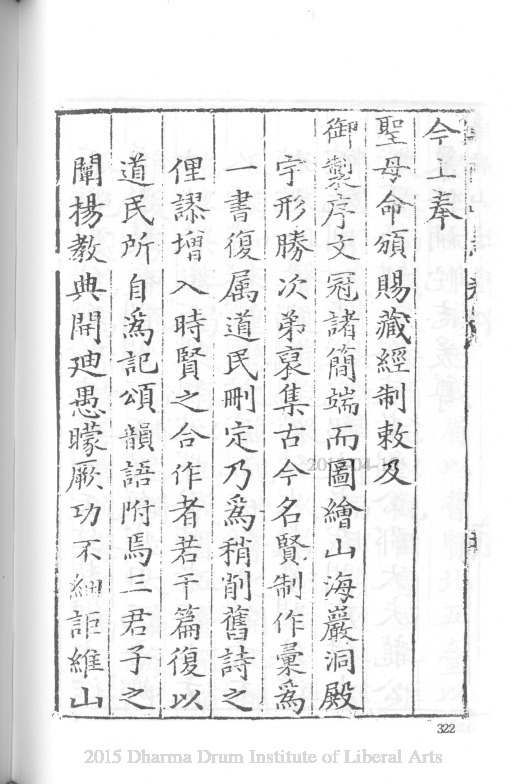 今上奉
聖母命頒賜藏經制敕及
御製序文冠諸簡端而圖繪山海巖洞殿
宇形勝次第裒集古今名賢制作彙為
一書復属道民刪定乃為稍削舊詩之
俚謬增入時賢之合作者若干篇復以
道民所自為記頌韻語附焉三君子之
闡揚教典開廸愚矇厥功不細詎維山
2015-04-1
322
2015 Dharma Drum Institute of Liberal Arts